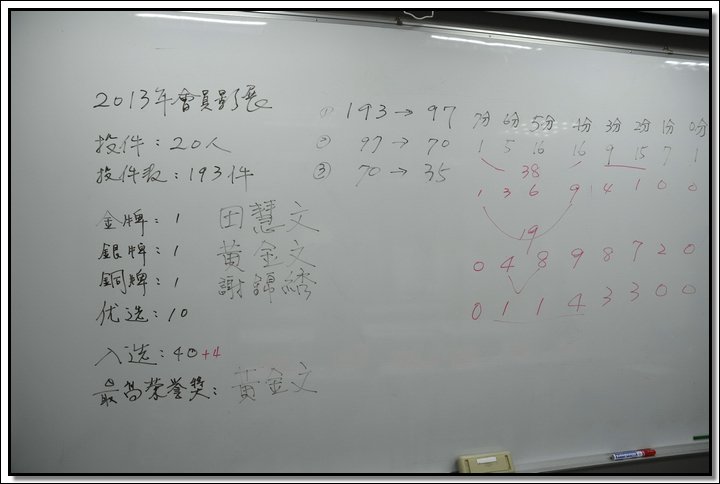 2013年會員影展
投件：20人
投件数：193件
金牌：1 田慧文
銀牌：1 黃金文
銅牌：1 謝錦綉
优选：10
入选：40+4
最高荣誉獎：黃金文
① 193→97
② 97→70
③ 70→35
7分 6分 5分 4分 3分 2分 1分 0分
1 5 16 16 9 15 7 1
38
1 3 6 9 14 1 0 0
19
0 4 8 9 8 7 2 0
0 1 1 4 3 3 0 0